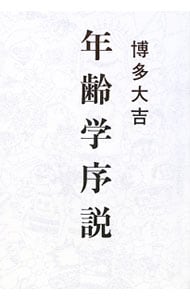 博多大吉
年齢学序説